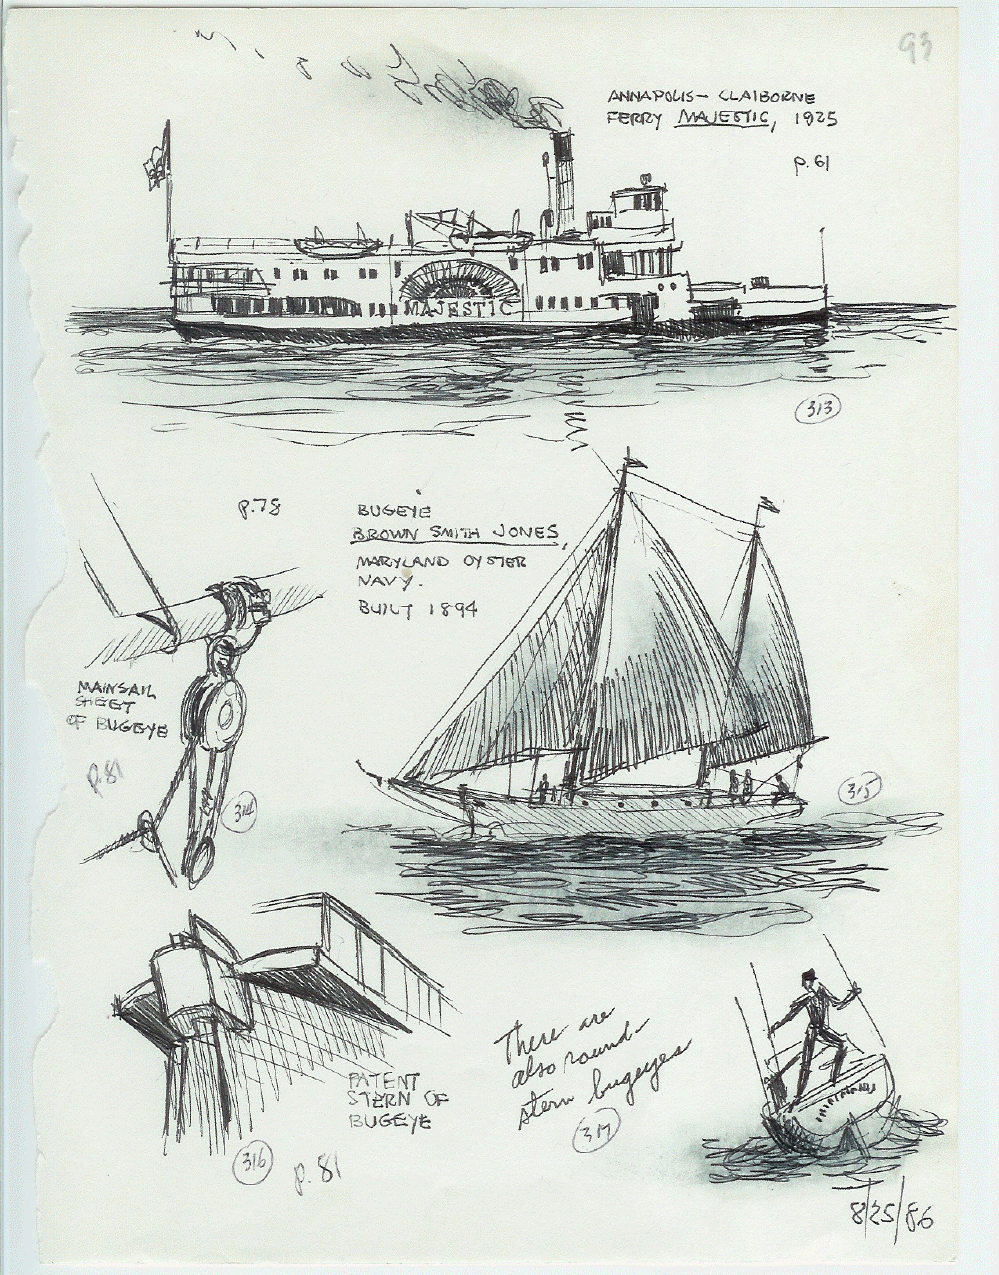 93
ANNAPOLIS – CLAIBORNE
FERRY MAJESTIC, 1925
p.61
MAJESTIC
313
p.78
BUGEYE
BROWN SMITH JONES,
MARYLAND OYSTER
NAVY.
BUILT 1894
MAINSAIL
SHEET
OF BUGEYE
p.81
314
315
PATENT
STERN OF
BUGEYE
316
p.81
There are
also round-
stern bugeyes
317
8/25/86